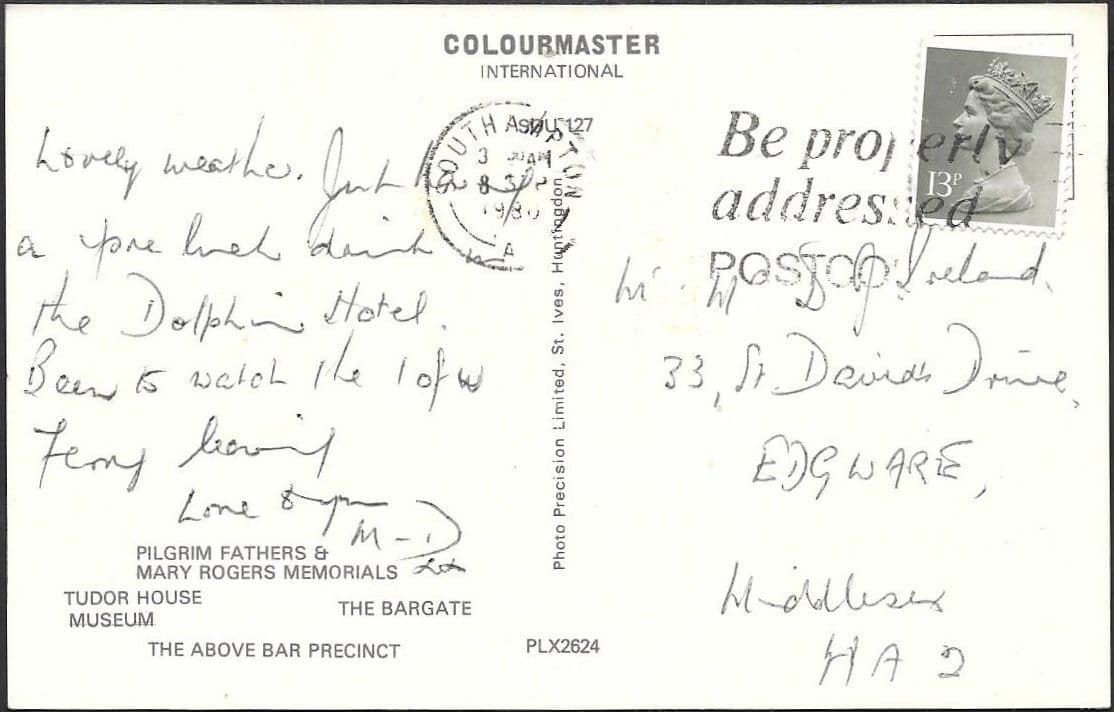 COLOURMASTER
INTERNATIONAL
Lovely weather. Just
a pre lunch drink in
the Dolphin Hotel.
Been to watch the I of W
Ferry leaving
Love to you
M - D
xx
PILGRIM FATHERS &
MARY ROGERS MEMORIALS
TUDOR HOUSE
MUSEUM
THE BARGATE
THE ABOVE BAR PRECINCT
PLX2624
Photo Precision Limited, St. Ives, Huntingdon
SOUTHAMPTON
1980
A
Be properly
addressed
POSTCO
13P
D J Ireland.
33, St. Davids Drive,
EDGWARE,
Middlesex
HA